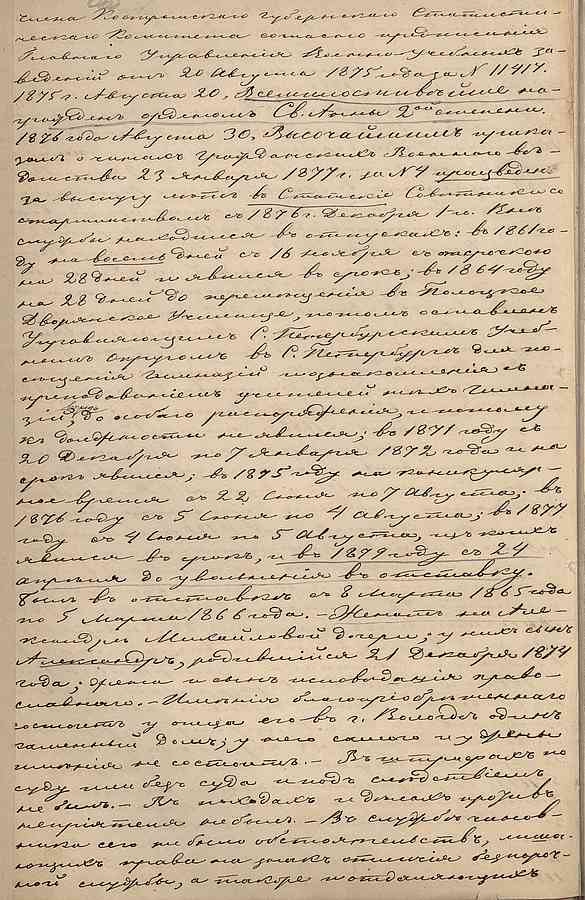 члена Костромскаго Губернскаго Статисти-
ческаго Комитета согласно предписанія
Главнаго Управленія Военно-Учебныхъ за-
веденій отъ 20 Августа 1875 года за № 11417.
1875 г. Августа 20, Всемилостивѣйше на-
гражденъ орденомъ Св. Анны 2ой степени.
1876 года Августа 30, Высочайшимъ прика-
зомъ о чинахъ Гражданскихъ Военнаго вѣ-
домства 23 Января 1877 г. за № 4 произведенъ
за выслугу лѣтъ въ Статскіе Совѣтники со
старшинствомъ съ 1876 г. Декабря 1-го. Внѣ
службы находился въ отпускахъ: въ 1861 го-
ду на восемь дней съ 16 Ноября съ отсрочкою
на 28 дней и явился въ срокъ; въ 1864 году
на 28 дней до перемѣщенія въ Полоцкое
Дворянское Училище, потомъ оставленъ
Управляющимъ С. Петербургскимъ Учеб-
нымъ Округомъ въ С. Петербургѣ для по-
сѣщенія гимназій и ознакомленія съ
преподаваніемъ учителей тѣхъ гимна-
зій, до особаго распоряженія, и потому
къ должности не явился; въ 1871 году съ
20 Декабря по 7 Января 1872 года и на
срокъ явился; въ 1875 году на каникуляр-
ное время съ 22 Іюня по 7 Августа; въ
1876 году съ 5 Іюня по 4 Августа; въ 1877
году съ 4 Іюня по 5 Августа, изъ коихъ
явился въ срокъ, и въ 1879 году съ 24
апрѣля до увольненія въ отставку.
Былъ въ отставкѣ съ 8 Марта 1865 года
по 5 Марта 1866 года. - Женатъ на Але-
ксандрѣ Михайловой дочери; у нихъ сынъ
Александръ, родившійся 21 Декабря 1874
года; жена и сынъ исповѣданія право-
славнаго. - Имѣнія благопріобрѣтеннаго
состоитъ у отца его въ г. Вологдѣ одинъ
каменный домъ; у него самого и у жены
имѣнія не состоитъ. - Въ штрафахъ по
суду или безъ суда и подъ слѣдствіемъ
не былъ. - Въ походахъ и дѣлахъ противъ
непріятеля не былъ. - Въ службѣ чинов-
ника сего не было обстоятельствъ, лиша-
ющихъ права на знакъ отличія безпороч-
ной службы, а также и отдаляющихъ